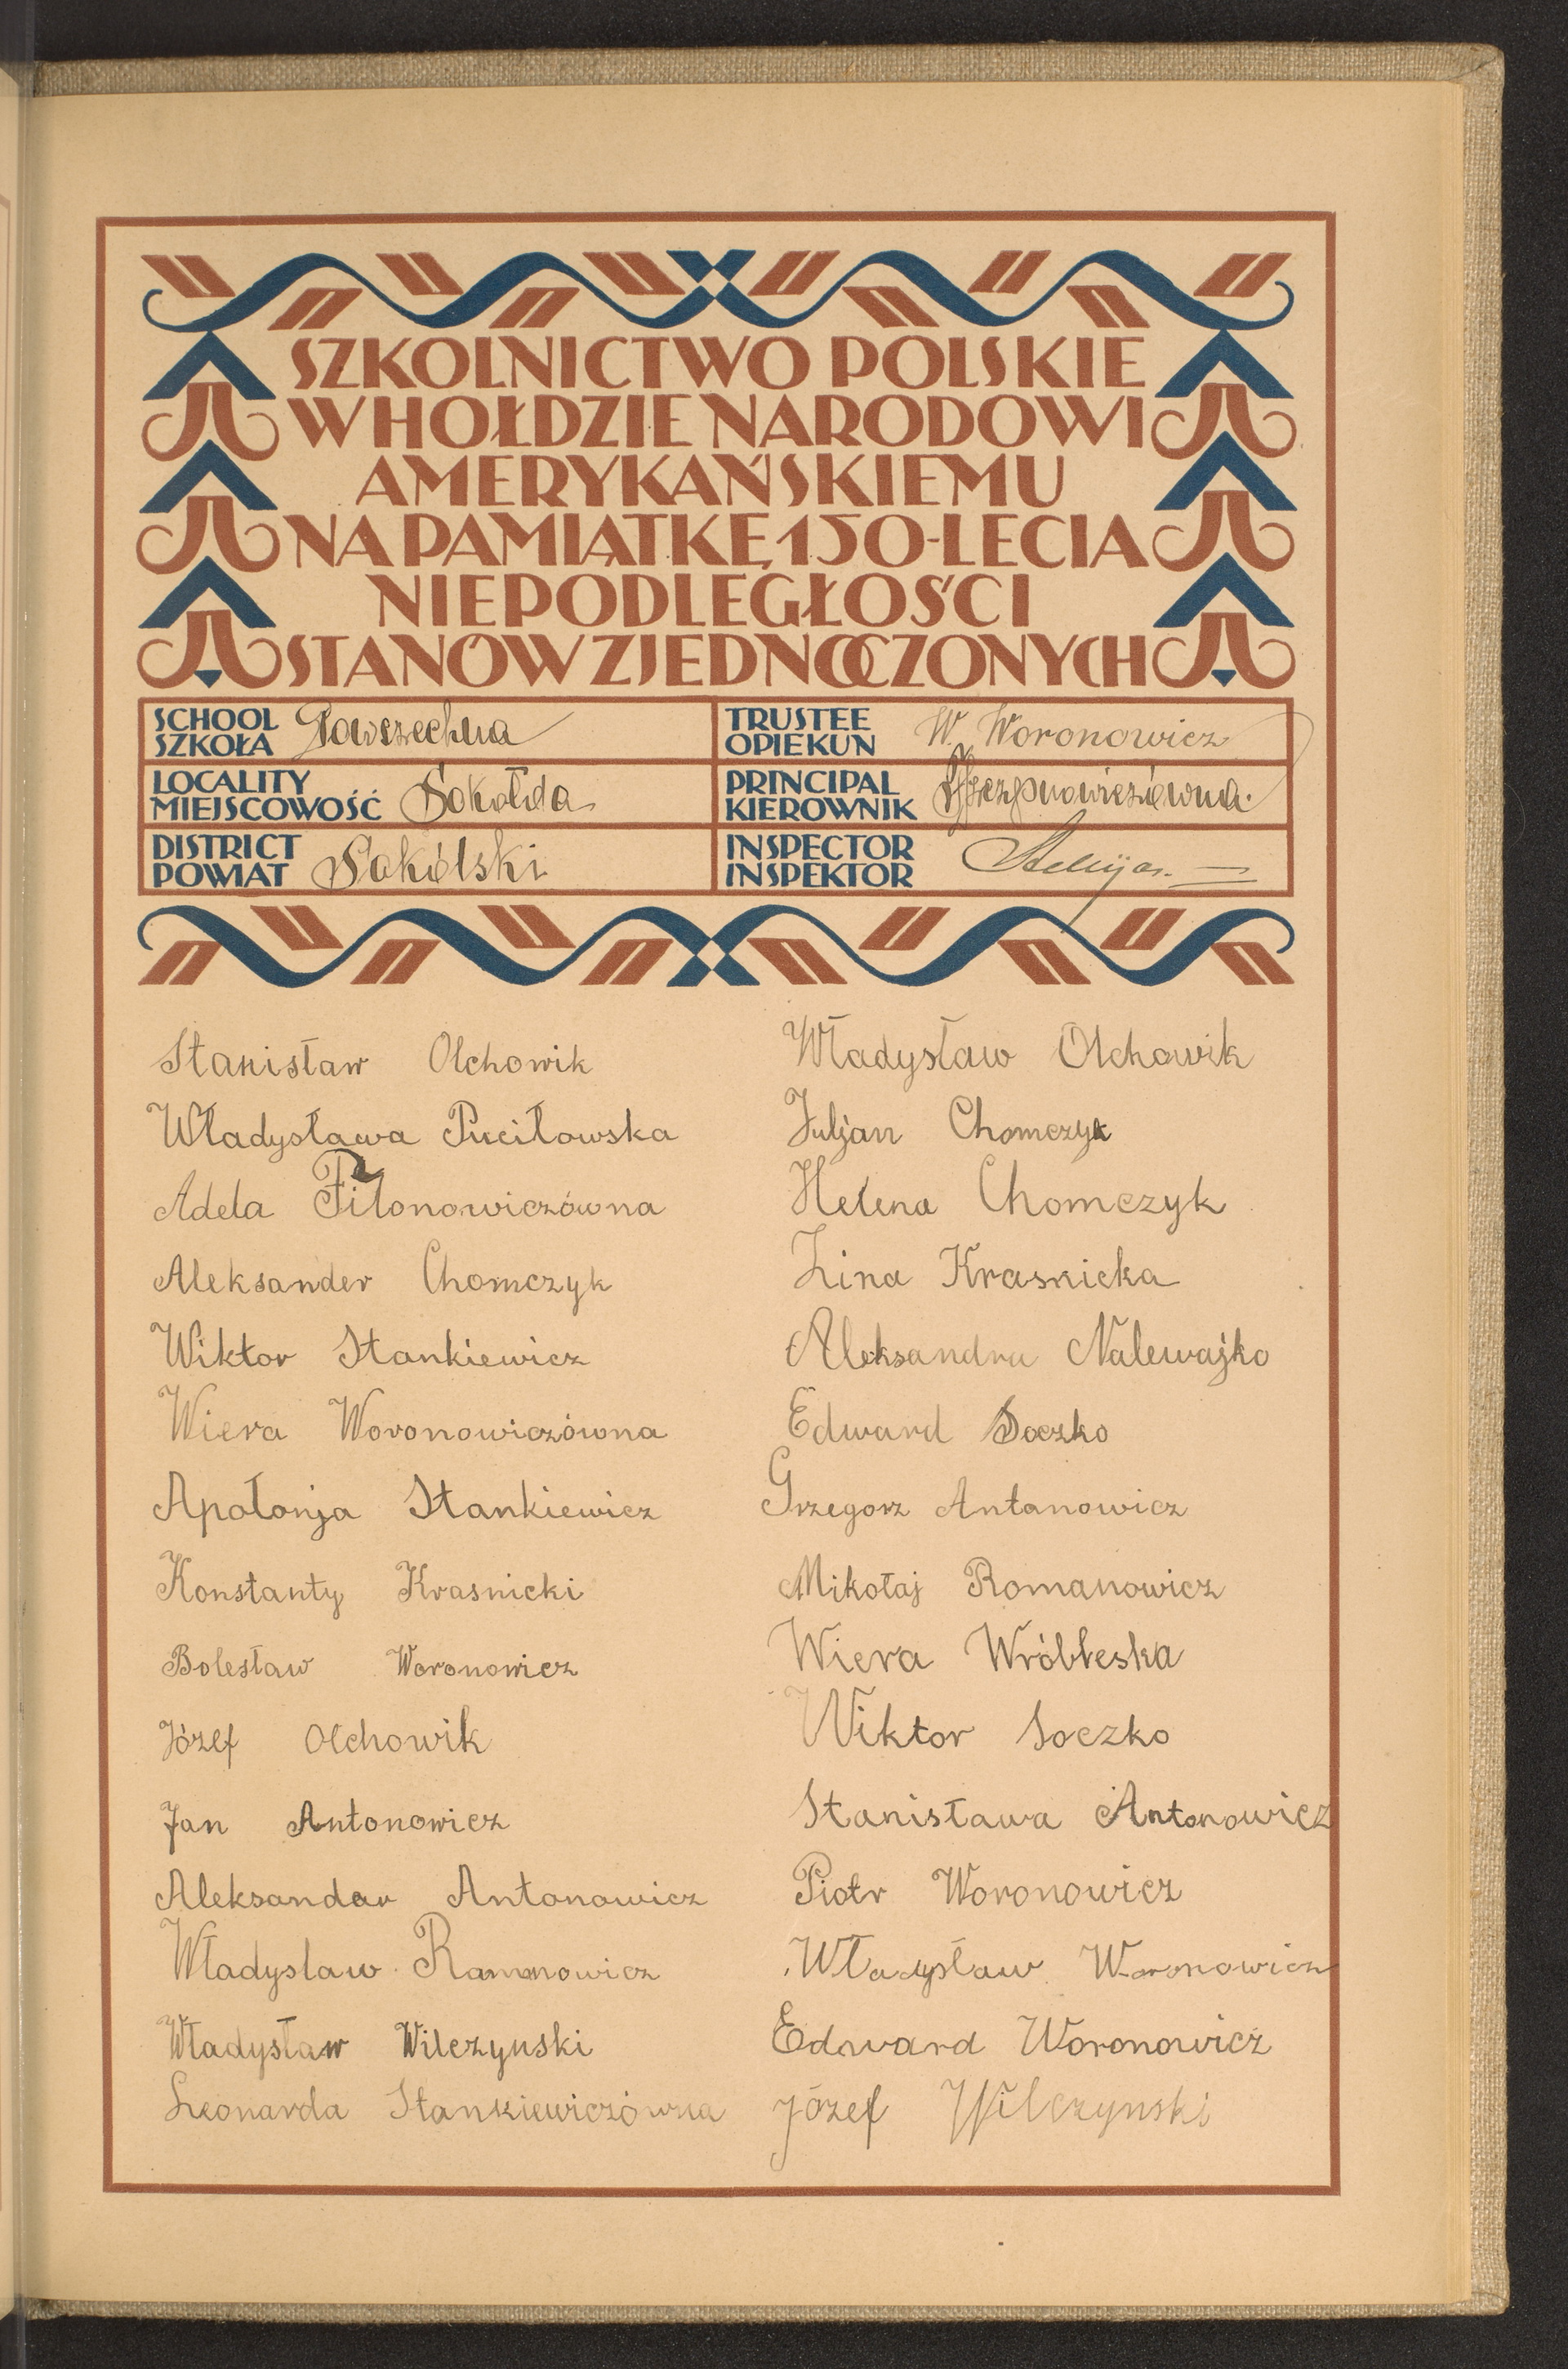 SZKOLNICTWO POLSKIE
W HOŁDZIE NARODOWI
AMERYKAŃSKIEMU
NA PAMIĄTKĘ 150-LECIA
NIEPODLEGŁOŚCI
STANÓW ZJEDNOCZONYCH
SCHOOL SZKOŁA Powszechna
TRUSTEE OPIEKUN W. Woronowicz
LOCALITY MIEJSCOWOŚĆ Sokołda
PRINCIPAL KIEROWNIK
DISTRICT POWIAT Sokólski
INSPECTOR INSPEKTOR
Stanisław Olchowik
Władysława Puciłowska
Adela Filonowiczówna
Aleksander Chomczyk
Wiktor Stankiewicz
Wiera Woronowiczówna
Apołonja Stankiewicz
Konstanty Krasnicki
Bolesław Woronowicz
Józef Olchowik
Jan Antonowicz
Aleksandar Antonowicz
Władyslaw Ramanowicz
Władysław Wilczynski
Leonarda Stankiewiczówna
Władysław Olchowik
Juljan Chomczyk
Helena Chomczyk
Zina Krasnicka
Aleksandra Nalewajko
Edward Soczko
Grzegorz Antanowicz
Mikołaj Romanowicz
Wiera Wróbleska
Wiktor Soczko
Stanisława Antonowicz
Piotr Woronowicz
Władysław Woronowicz
Edward Woronowicz
Józef Wilczynski